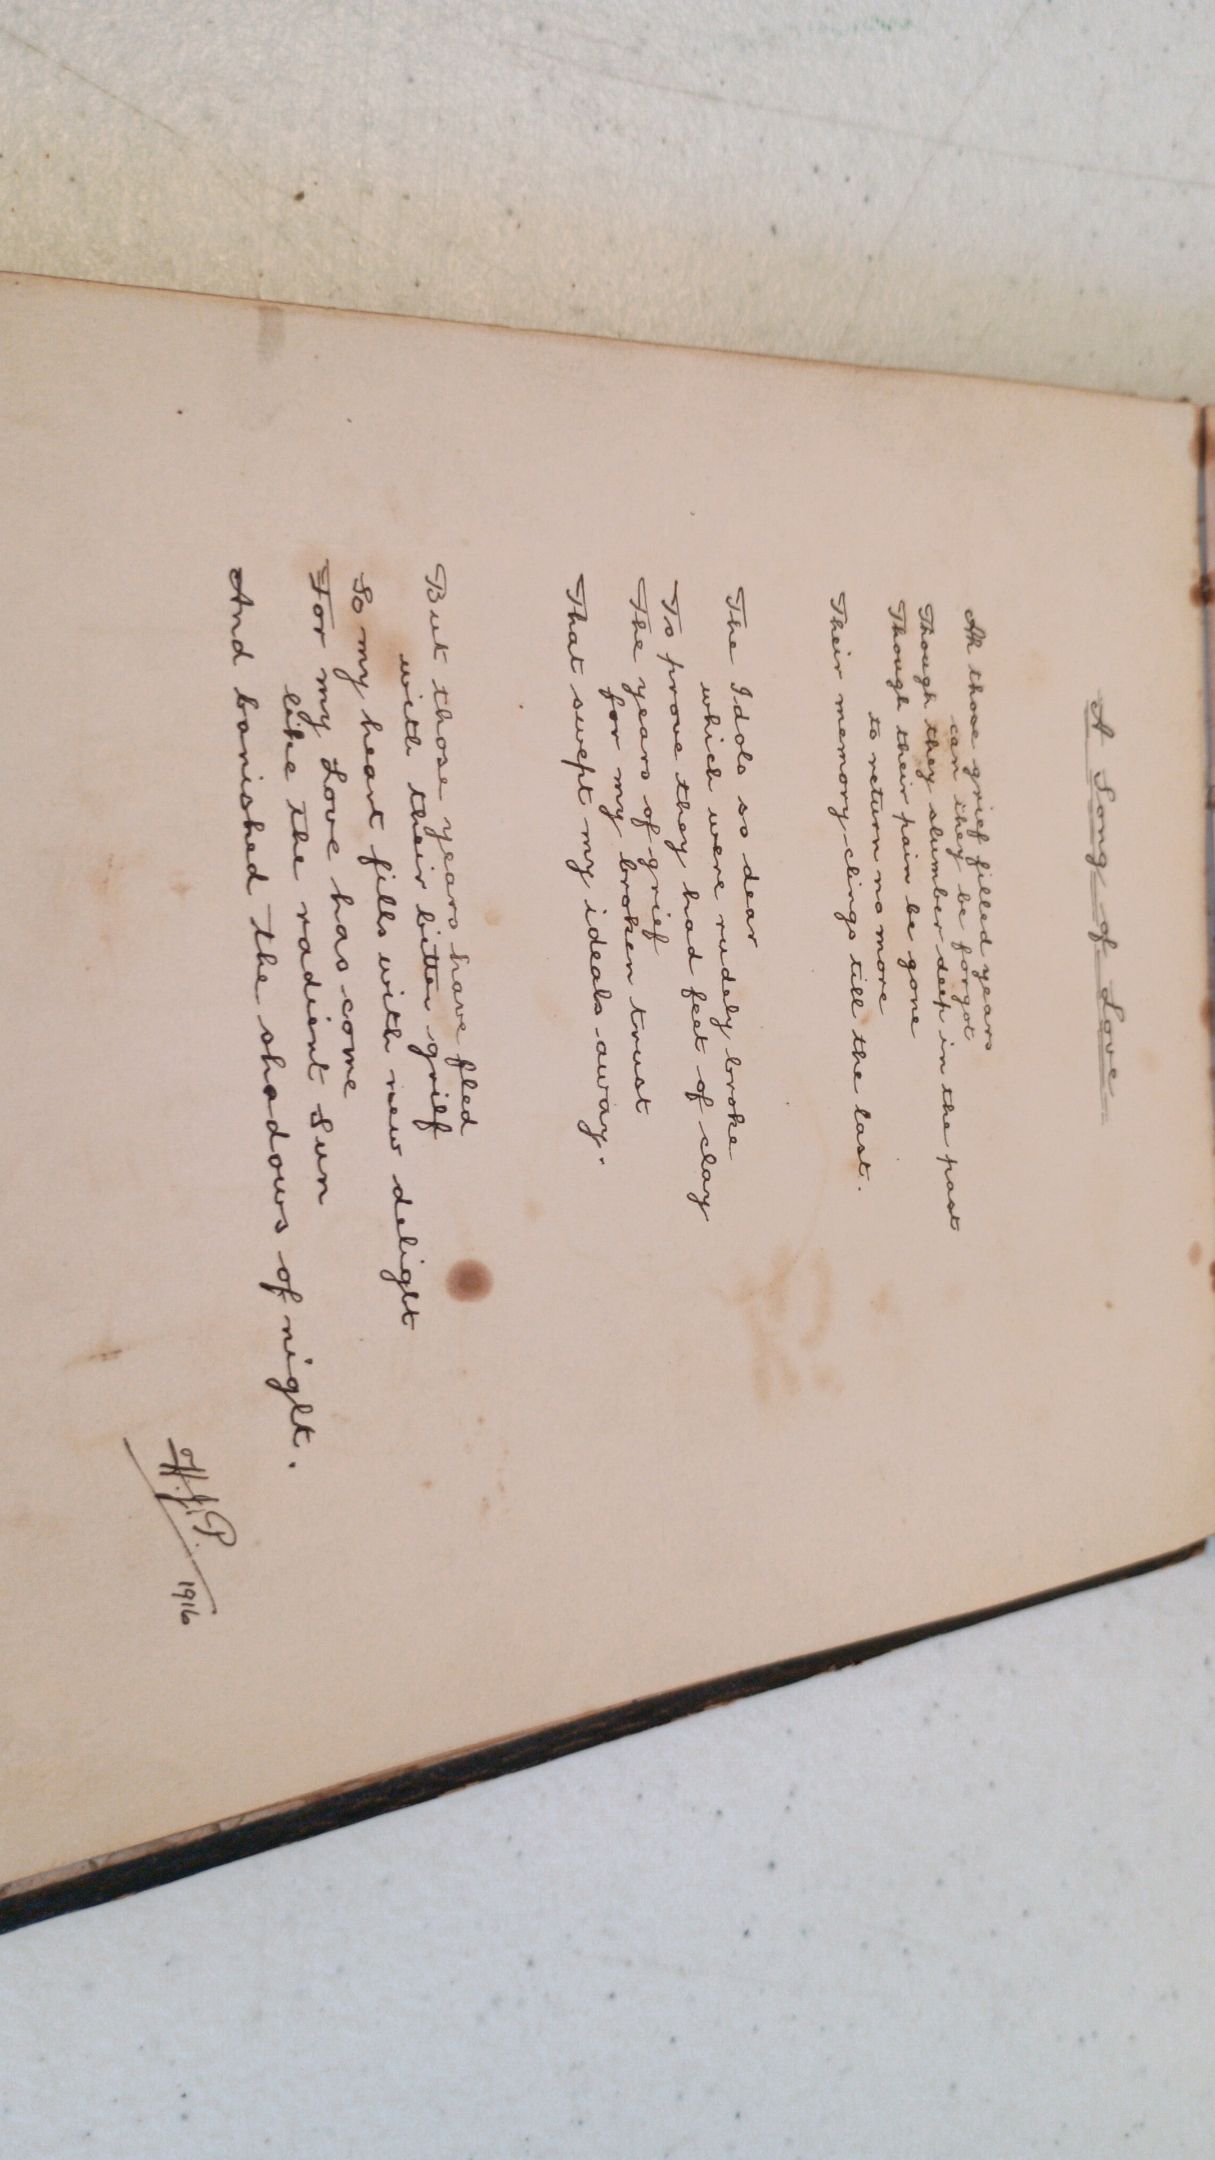 A Song of Love
Ah those grief filled years
can they be forgot
Though they slumber deep in the past
Though their pain be gone
to return no more
Their memory clings till the last.
The Idols so dear
which were rudely broke
To prove they had feet of clay
The years of grief
for my broken trust
That swept my ideals away.
But those years have fled
with their bitter grief
So my heart fills with new delight
For my Love has come
like the radient Sun
And banished the shadows of night.
H.J.P. 1916